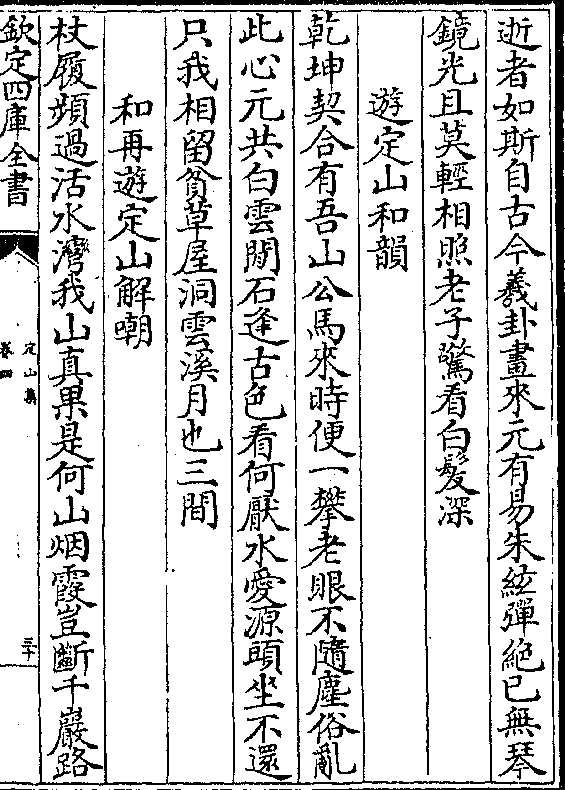 逝者如斯自古今羲卦畫來元有易朱絃彈絶已無琴
鏡光且莫輕相照老子驚看白髪深
遊定山和韻
乾坤契合有吾山公馬來時便一攀老眼不隨塵俗亂
此心元共白雲閒石逢古色看何厭水愛源頭坐不還
只我相留貧草屋洞雲溪月也三間
和再遊定山解嘲
杖履頻過活水灣我山真果是何山烟霞豈斷千巖路
欽定四庫全書
定山集
卷四
三十